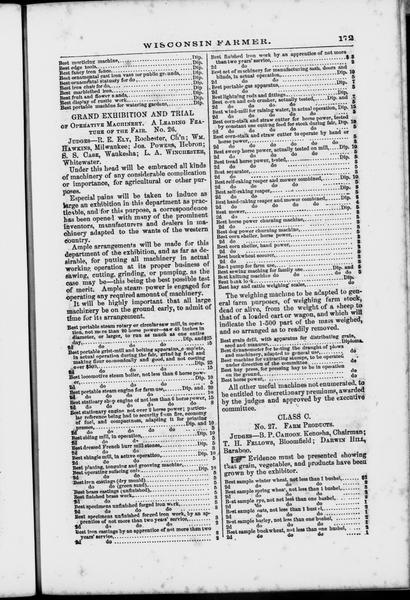 WISCONSIN FARMER. 172
Best morticing machine, Dip.
Best edge tools, Dip.
Best fancy iron fence, Dip.
Best ornamental cast iron vase or public grounds, Dip.
Best ornamental statuary for do Dip.
Best iron chair for do, Dip.
Best marbleized iron, Dip.
Best fruit and flower stands, Dip.
Best display of rustic work, Dip.
Best portable machine for watering gardens, Dip.
GRAND EXHIBITION AND TRIAL
OF OPERATIVE MACHINERY. A LEADING FEA-
TURE OF THE FAIR. No. 26.
JUDGES—R. E. ELY, Rochester, Ch'n; WM.
HAWKINS, Milwaukee; JOS. POWERS, Hebron;
S. S. CASE, Waukesha; L. A. WINCHESTER,
Whitewater.
Under this head will be embraced all kinds
of machinery of any considerable complication
or importance, for agricultural or other pur-
poses.
Especial pains will be taken to induce as
large an exhibition in this department as prac-
ticable, and for this purpose, a correspondence
has been opened with many of the prominent
inventors, manufacturers and dealers in ma-
chinery adapted to the wants of the western
country.
Ample arrangements will be made for this
department of the exhibition, and as far as de-
sirable, for putting all machinery in actual
working operation at its proper business of
sawing, cutting, grinding, or pumping, as the
case may be—this being the best possible test
of merit. Ample steam power is engaged for
operating any required amount of machinery.
It will be highly important that all large
machinery be on the ground early, to admit of
time for its arrangement.
Best portable steam rotary or circular saw mill, in opera-
tion, not more than 20 horse power—saw 48 inches in
diameter, or larger, to run as much as one entire
day, Dip. and $25
2d do do 15
Best portable grist-mill and bolting apparatus, complete,
in actual operation during the fair, grinding feed and
making flour economically and good, and not costing
over $300,
2d do do
Best locomotive steam boiler, not less than 6 horse pow-
er,
2d do do
Best portable steam engine for farm use, Dip. and 20
2d do do
Best stationary slop engine of not less than 6 horse power,
2d do do
Best stationary engine not over 3 horse power; particu-
lar reference being had to security from fire, economy
of fuel, and compactness, adapting it for printing
presses, Dip. and 10
2d do do
Best siding mill, in operation,
2d do do
Best dressed French burr mill stones,
2d do do
Best shingle mill, in active operation,
2d do do
Best planing, tonguing and grooving machine, Dip. 10
Best operative suffocing mill,
2d do do
Best iron castings (dry mould)
2d do (green sand),
Best brass castings (unfinished),
Best finished brass work,
2d do
Best specimens unfinished forged iron work,
2d do do
Best specimens unfinished forged iron work, by an ap-
prentice of not more than two years' service,
2d do do
Best iron castings by an apprentice of not more than two
years' service,
2d do do
Best finished iron work by an apprentice of not more
than two years' service,
2d do do
Best set of machinery for manufacturing sash, doors and
blinds, in actual operation,
2d do do
Best portable gas apparatus,
2d do do
Best lightning rods and fittings,
Best corn and cob crusher, actually tested,
2d do do
Best wind-mill for raising water, in actual operation,
2d do do
Best corn-stalk and straw cutter for horse power, tested
by constant use cutting feed for stock during fair,
2d do do
Best corn-stalk and straw cutter to operate by hand or
horse power,
2d do do
Best sweep horse power, actually tested on ground,
2d do do
Best tread horse power, tested,
2d do do
Best separator,
2d do
Best self-raking reaper and mower combined,
2d do do
Best self-raking reaper,
2d do
Best hand-raking reaper and mower combined,
2d do do
Best mower,
2d do
Best horse power churning machine,
2d do do
Best dog power churning machine,
Best corn sheller, horse power,
2d do do
Best corn sheller, hand power,
2d do do
Best buckwheat scourer,
2d do
Best pump for farm use,
Best sewing machine for family use
Best knitting machine do
Best hay and cattle weighing scales,
The weighing machine to be adapted to gen-
eral farm purposes, of weighing farm stock,
dead or alive, from the weight of a sheep to
that of a loaded cart or wagon, and which will
indicate the 1-500 part of the mass weighed,
and so arranged as to readily removed.
Best grain drill, with apparatus for distributing grain,
seed and manure, Diploma.
Best dynamometer for testing the draught of plows
and machinery, adapted to general use,
Best machine for extirpating stumps, to be operated
under direction of the committee
Best hay press, for pressing hay to be in operation
on the ground,
Best horse power,
All other useful machines not enumerated, to
be entitled to discretionary premiums, awarded
by the judges and approved by the executive
committee.
CLASS C.
No. 27. FARM PRODUCTS.
JUDGES—S. P. CATHOK, Kenosha, Chairman;
T. H. FELLOWS, Bloomfield; DARWIN HILL,
Baraboo.
☞ Evidence must be presented showing
that grain, vegetables, and products have been
grown by the exhibitor.
Best sample winter wheat, not less than 1 bushel,
2d do do do
Best sample spring wheat, not less than 1 bushel,
2d do do do
Best sample rye, not less than one bushel,
2d do do do
Best sample oats, not less than 1 bushel,
2d do do do
Best sample barley, not less than one bushel,
2d do do do
Best sample buckwheat, not less than one bushel,
2d do do do